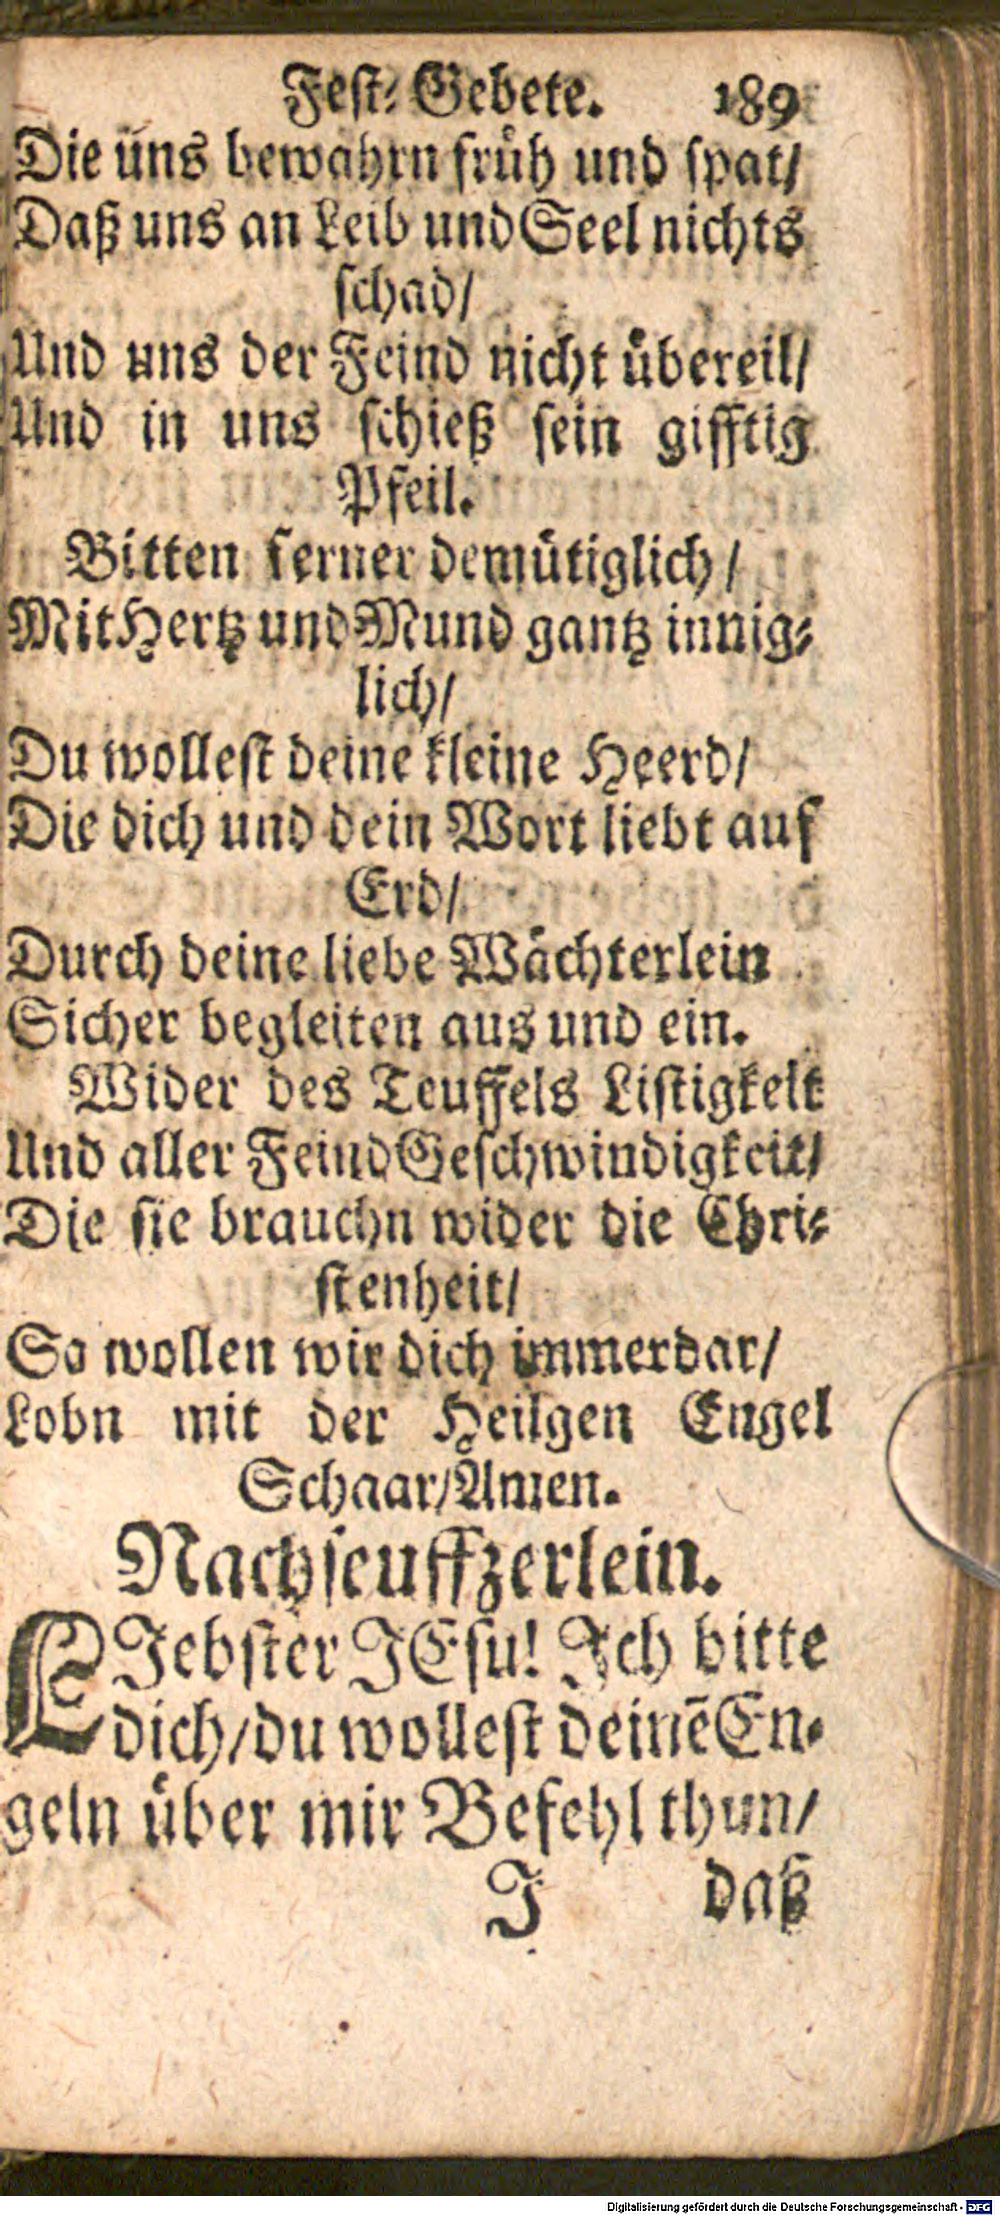 Fest-Gebete. 189
Die uns bewahrn früh und spat/
Daß uns an Leib und Seel nichts
schad/
Und uns der Feind nicht übereil/
Und in uns schieß sein gifftig
Pfeil.
Bitten ferner demütiglich/
Mit Hertz und Mund gantz innig-
lich/
Du wollest deine kleine Heerd/
Die dich und dein Wort liebt auf
Erd/
Durch deine liebe Wächterlein
Sicher begleiten aus und ein.
Wider des Teuffels Listigkeit
Und aller Feind Geschwindigkeit/
Die sie brauchn wider die Chri-
stenheit/
So wollen wir dich immerdar/
Lobn mit der Heilgen Engel
Schaar/Amen.
Nachseuffzerlein.
LIebster JEsu! Ich bitte
dich/du wollest deinē En-
geln über mir Befehl thun/
J daß
Digitalisierung gefördert durch die Deutsche Forschungsgemeinschaft - DFG